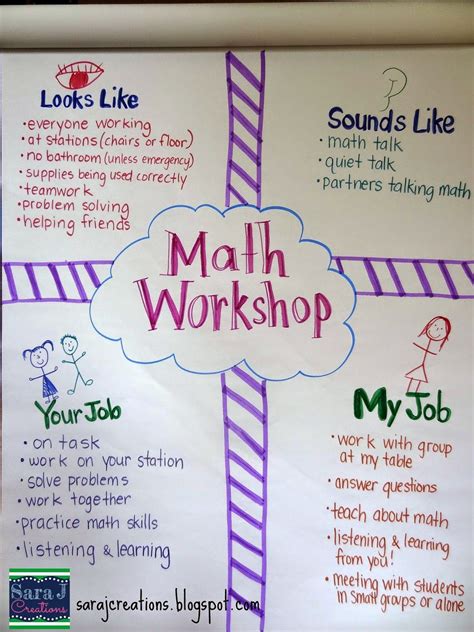 Looks Like
• everyone working
• at stations (chairs or floor)
• no bathroom (unless emergency)
• supplies being used correctly
• teamwork
• problem solving
• helping friends
Sounds Like
• math talk
• quiet talk
• partners talking math
Math
Workshop
Your Job
• on task
• work on your station
• solve problems
• work together
• practice math skills
• listening & learning
My Job
• work with group
at my table
• answer questions
• teach about math
• listening & learning
from you!
• meeting with students
in small groups or alone
Sara J
Creations
sarajcreations.blogspot.com